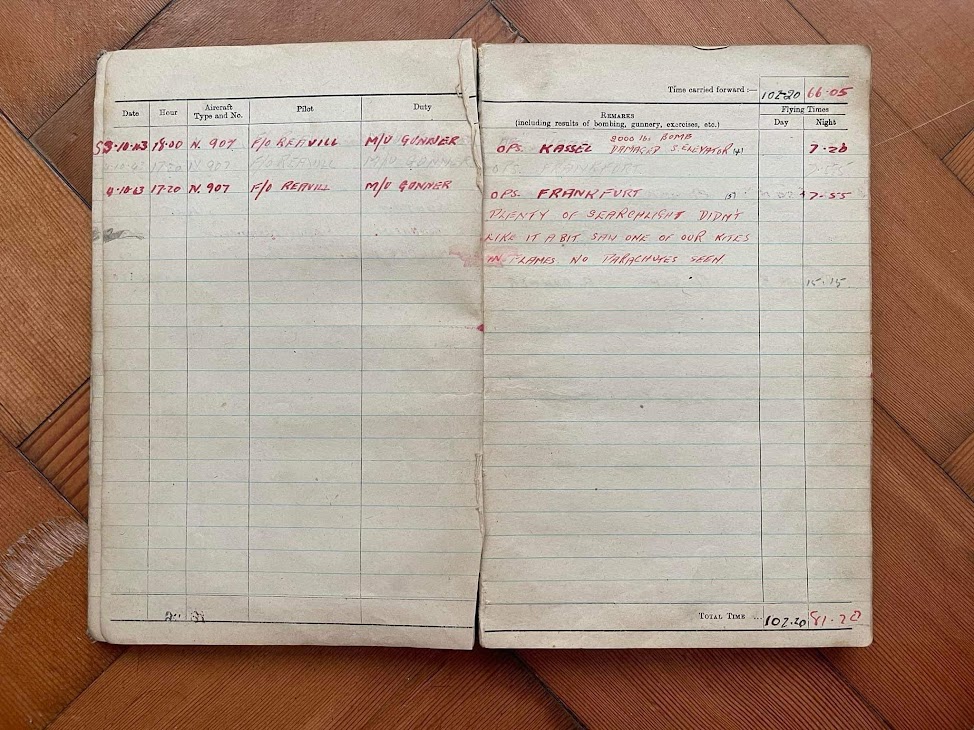 Time carried forward :— 102-20 66-05
Date Hour Aircraft Type and No. Pilot Duty
Remarks (including results of bombing, gunnery, exercises, etc.)
Flying Times
Day Night
3·10·43 18·00 N. 907 F/O REAVILL M/U GUNNER
8000 lb. BOMB
OPS. KASSEL DAMAGED S. ELEVATOR (4) 7·20
17·20 N·907 F/O REAVILL M/U GUNNER OPS. FRANKFURT
4·10·43 17·20 N. 907 F/O REAVILL M/U GUNNER
OPS. FRANKFURT (5) 7·55
PLENTY OF SEARCHLIGHT DIDN'T
LIKE IT A BIT SAW ONE OF OUR KITES
IN FLAMES NO PARACHUTES SEEN
15·15
Total Time ... 102·20 81·20